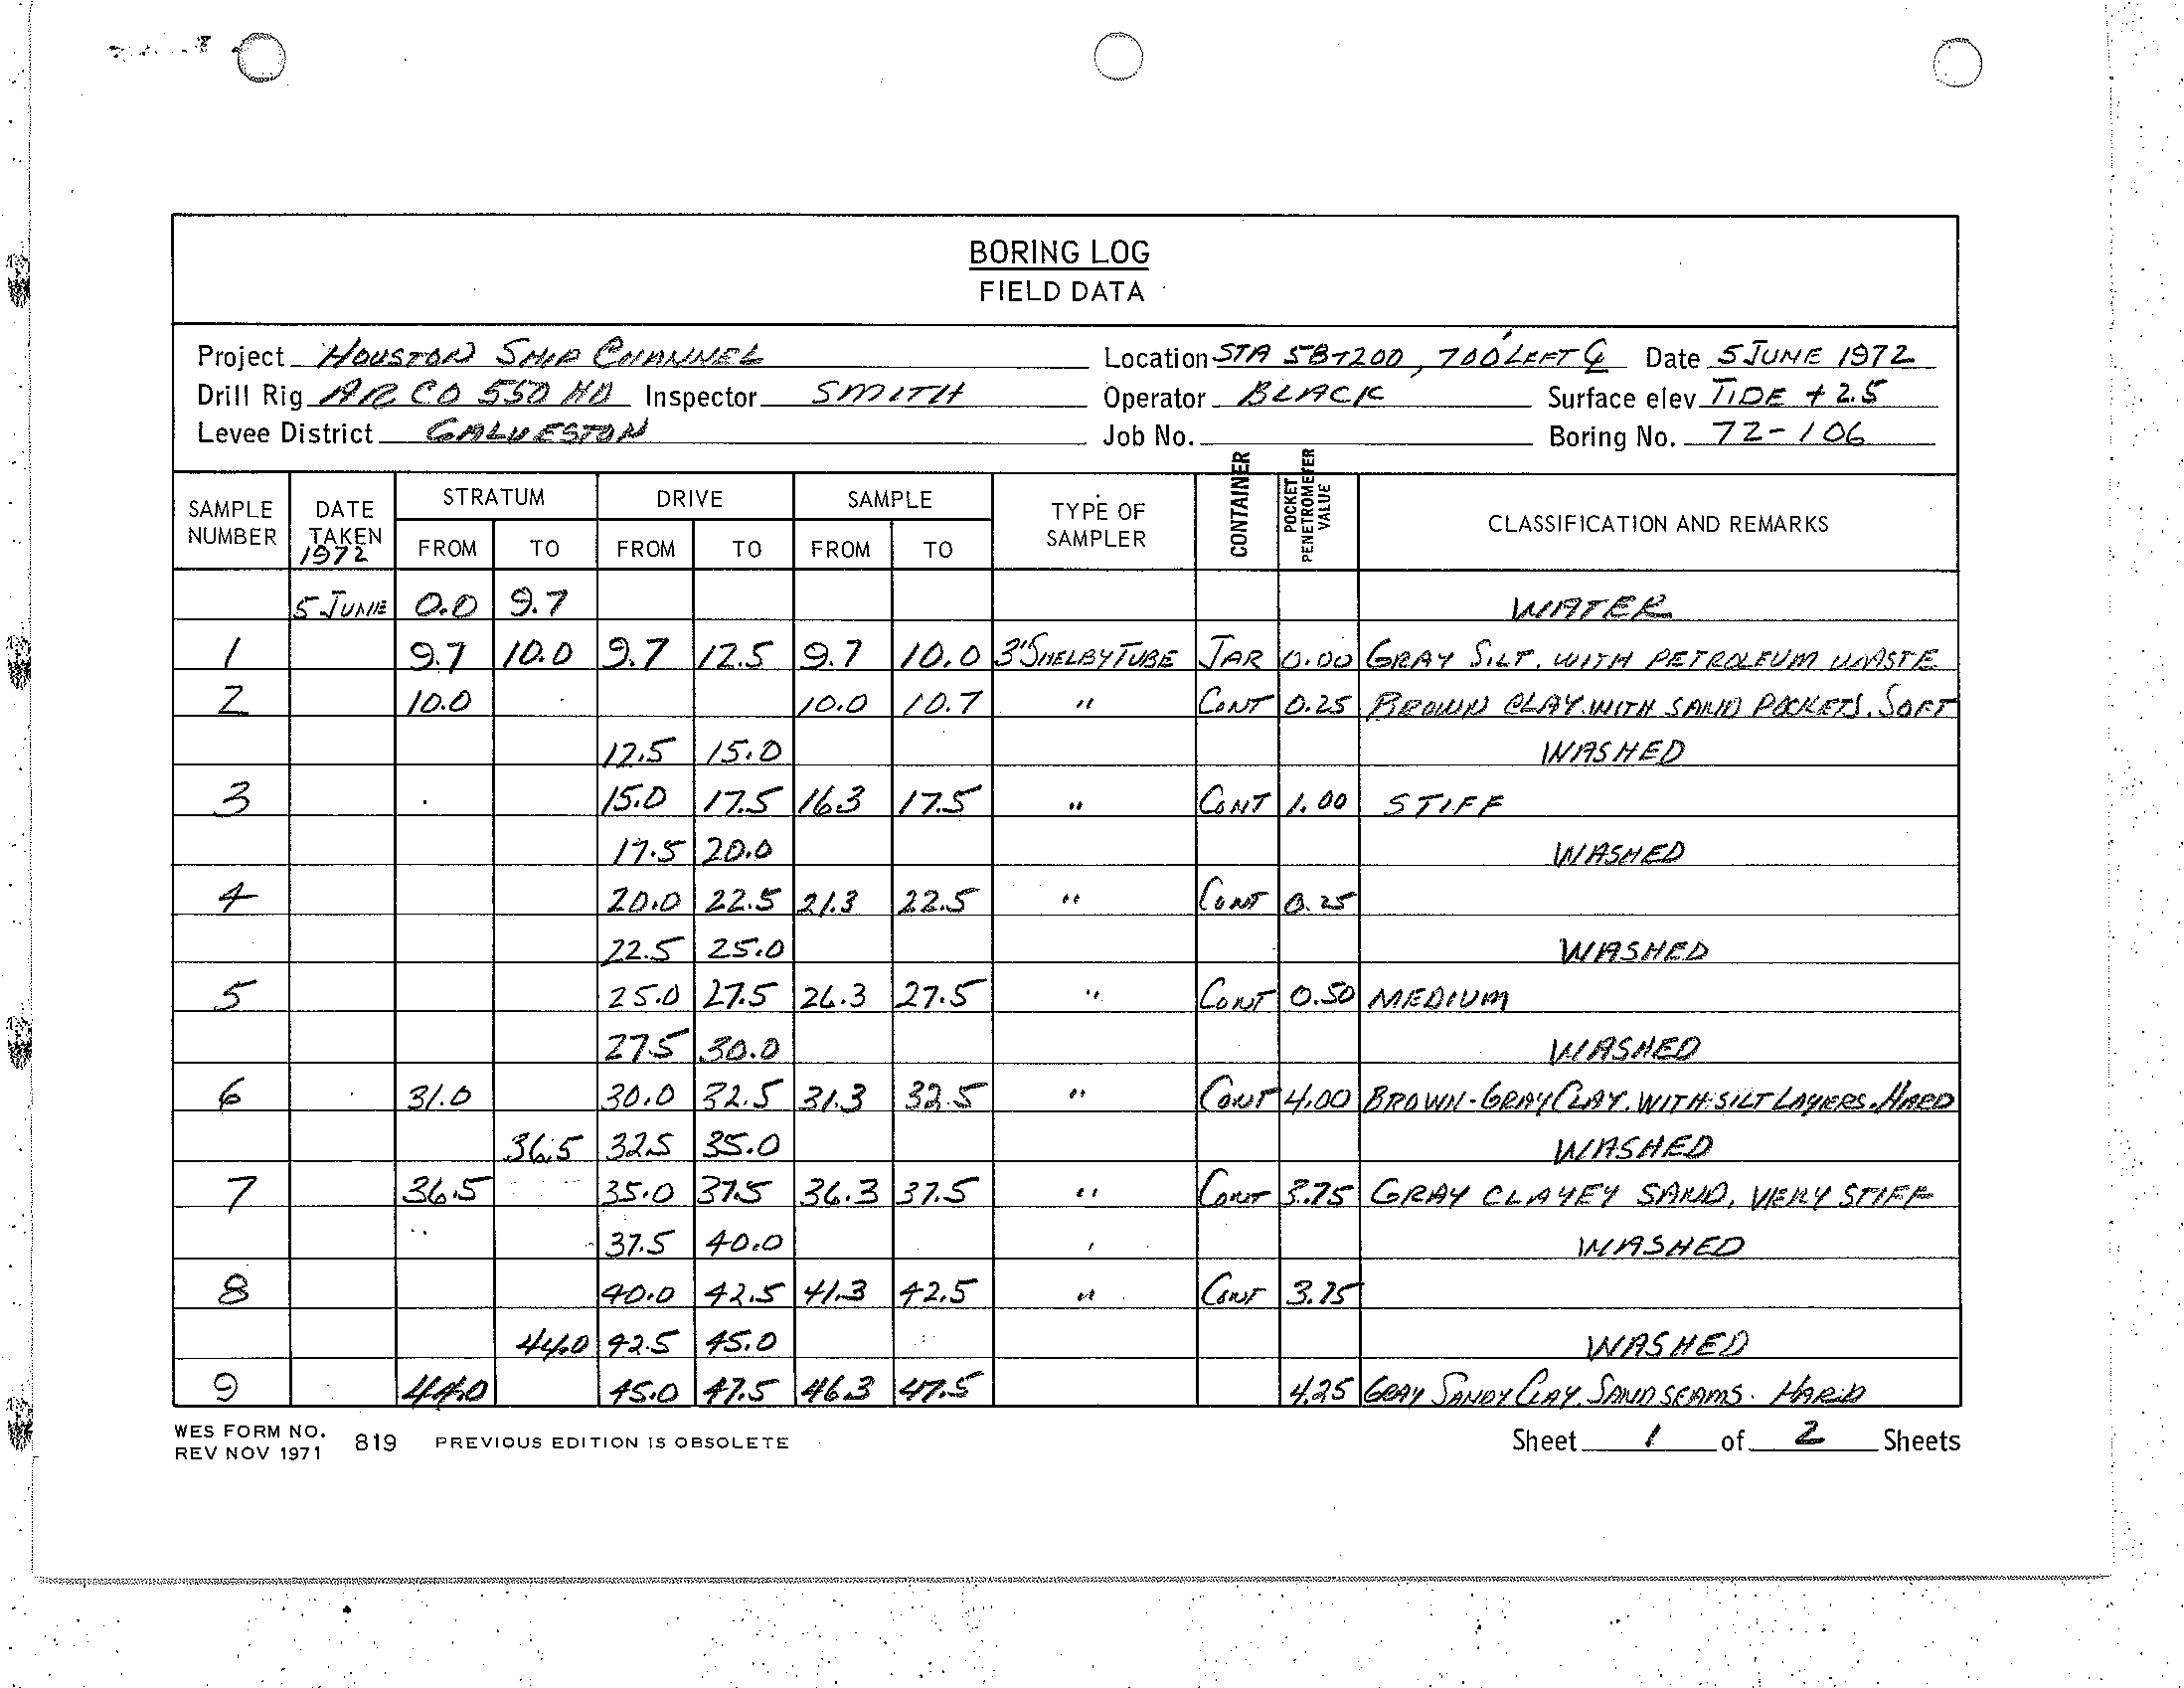 BORING LOG
FIELD DATA
Project HOUSTON SHIP CHANNEL Location STA 58+200, 700' LEFT ℄ Date 5 JUNE 1972
Drill Rig ARCO 550 HD Inspector SMITH Operator BLACK Surface elev TIDE + 2.5
Levee District GALVESTON Job No. Boring No. 72-106
SAMPLE NUMBER DATE TAKEN 1972 STRATUM FROM TO DRIVE FROM TO SAMPLE FROM TO TYPE OF SAMPLER CONTAINER POCKET PENETROMETER VALUE CLASSIFICATION AND REMARKS
5 JUNE 0.0 9.7 WATER
1 9.7 10.0 9.7 12.5 9.7 10.0 3" SHELBY TUBE JAR 0.00 GRAY SILT. WITH PETROLEUM WASTE
2 10.0 10.0 10.7 " CONT 0.25 BROWN CLAY. WITH SAND POCKETS. SOFT
12.5 15.0 WASHED
3 15.0 17.5 16.3 17.5 " CONT 1.00 STIFF
17.5 20.0 WASHED
4 20.0 22.5 21.3 22.5 " CONT 0.25
22.5 25.0 WASHED
5 25.0 27.5 26.3 27.5 " CONT 0.50 MEDIUM
27.5 30.0 WASHED
6 31.0 30.0 32.5 31.3 32.5 " CONT 4.00 BROWN-GRAY CLAY. WITH SILT LAYERS. HARD
36.5 32.5 35.0 WASHED
7 36.5 35.0 37.5 36.3 37.5 " CONT 3.75 GRAY CLAYEY SAND, VERY STIFF
37.5 40.0 WASHED
8 40.0 42.5 41.3 42.5 " CONT 3.75
44.0 42.5 45.0 WASHED
9 44.0 45.0 47.5 46.3 47.5 4.25 GRAY SANDY CLAY. SAND SEAMS. HARD
WES FORM NO. 819 PREVIOUS EDITION IS OBSOLETE Sheet 1 of 2 Sheets
REV NOV 1971